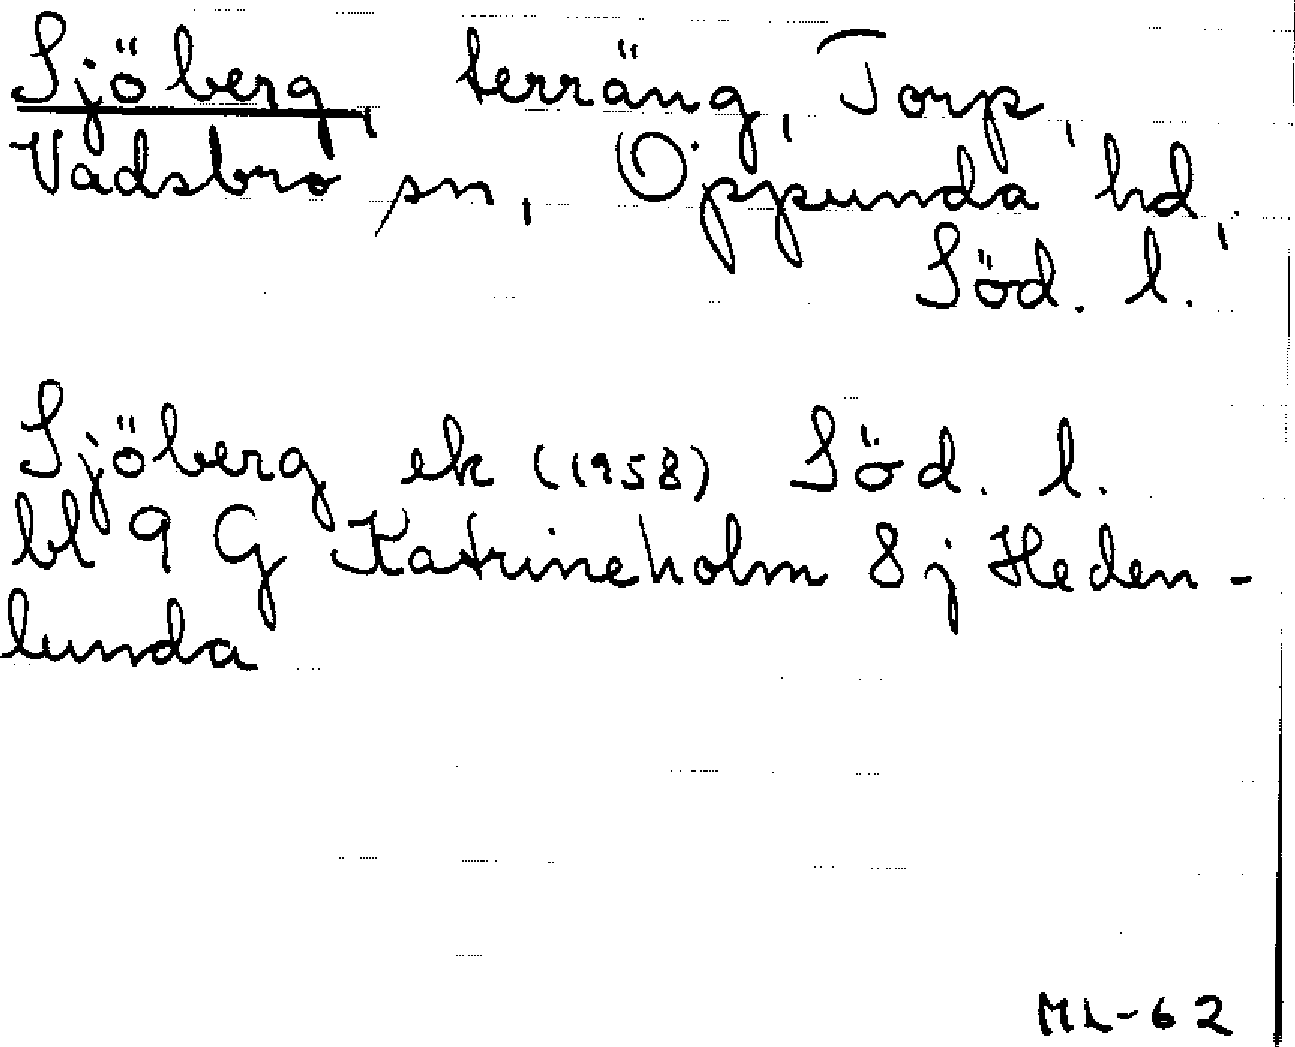 Sjöberg, terräng, Torp,
Vadsbro sn, Oppunda hd,
Söd. l.
Sjöberg ek (1958) Söd. l.
bl 9 G Katrineholm 8 j Heden-
lunda
ML-62